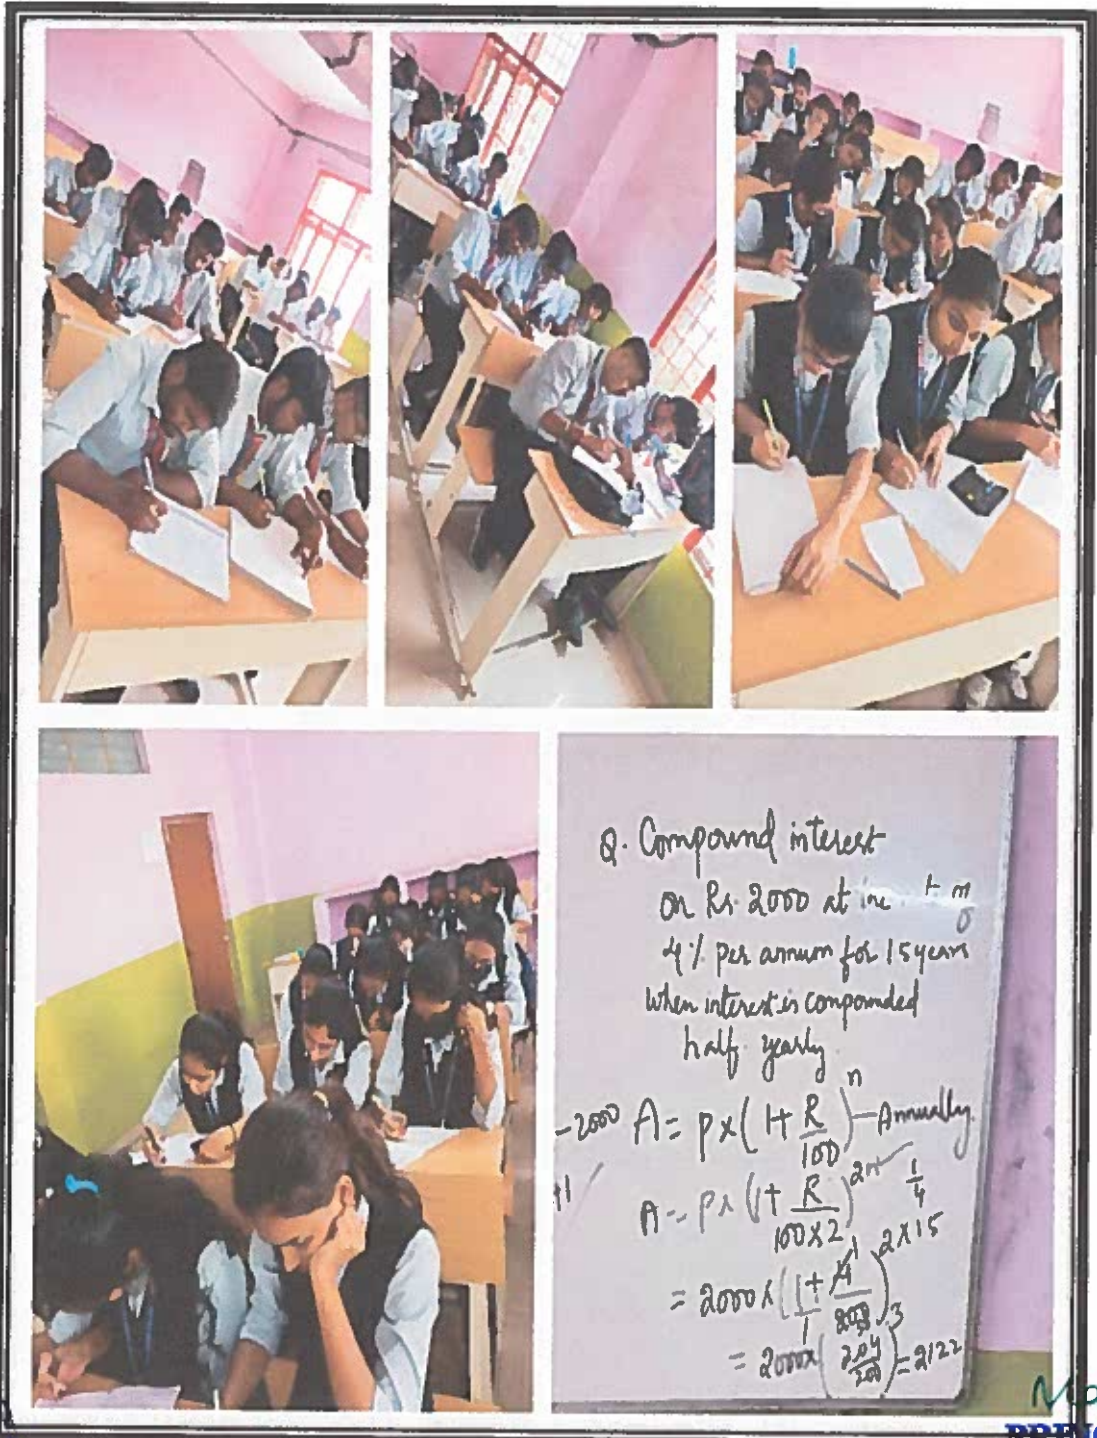 Q. Compound interest
on Rs. 2000 at
4% per annum for 15 years
when interest is compounded
half yearly.
-2000 A = P x (1 + R/100)^n — Annually.
A = P x (1 + R/100x2)^2n 1/4
= 2000 x (1 + 4/200)^2x15
= 2000x (204/200)^3 = 2122